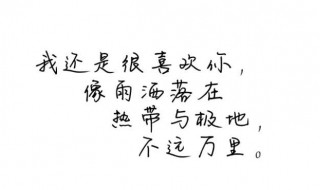 我还是很喜欢你，
像雨洒落在
热带与极地，
不远万里。